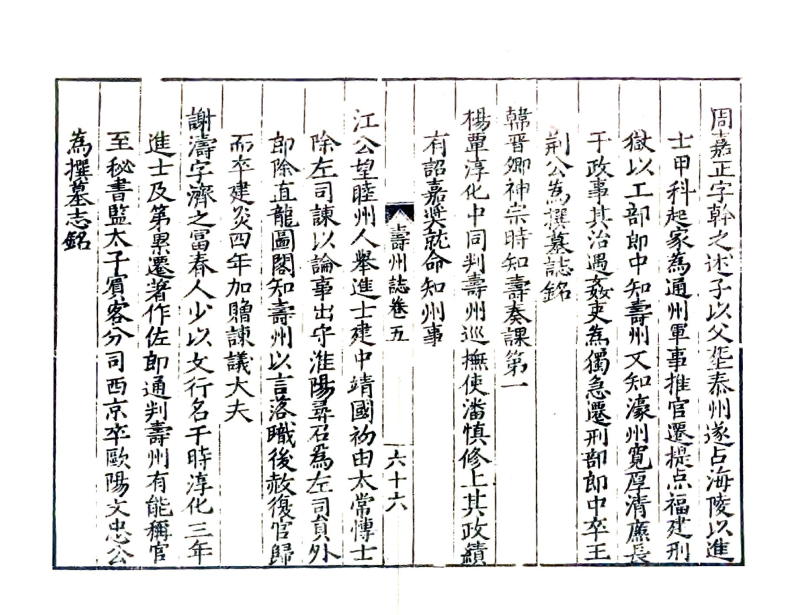 周嘉正字幹之述子以父塟泰州遂占海陵以進
士甲科起家為通州軍事推官遷提点福建刑
獄以工部郎中知壽州又知濠州寬厚清廉長
于政事其治遇姦吏為獨急遷刑部郎中卒王
荆公為撰墓誌銘
韓晋卿神宗時知壽奏課第一
楊覃淳化中同判壽州巡撫使潘慎修上其政績
有詔嘉奨就命知州事
壽州誌卷五
六十六
江公望睦州人舉進士建中靖國初由太常愽士
除左司諫以論事出守淮陽尋召為左司員外
郎除直龍圖閣知壽州以言落職後赦復官歸
而卒建炎四年加贈諫議大夫
謝濤字濟之冨春人少以文行名于時淳化三年
進士及第累遷著作佐郎通判壽州有能稱官
至秘書監太子賓客分司西京卒歐陽文忠公
為撰墓志銘